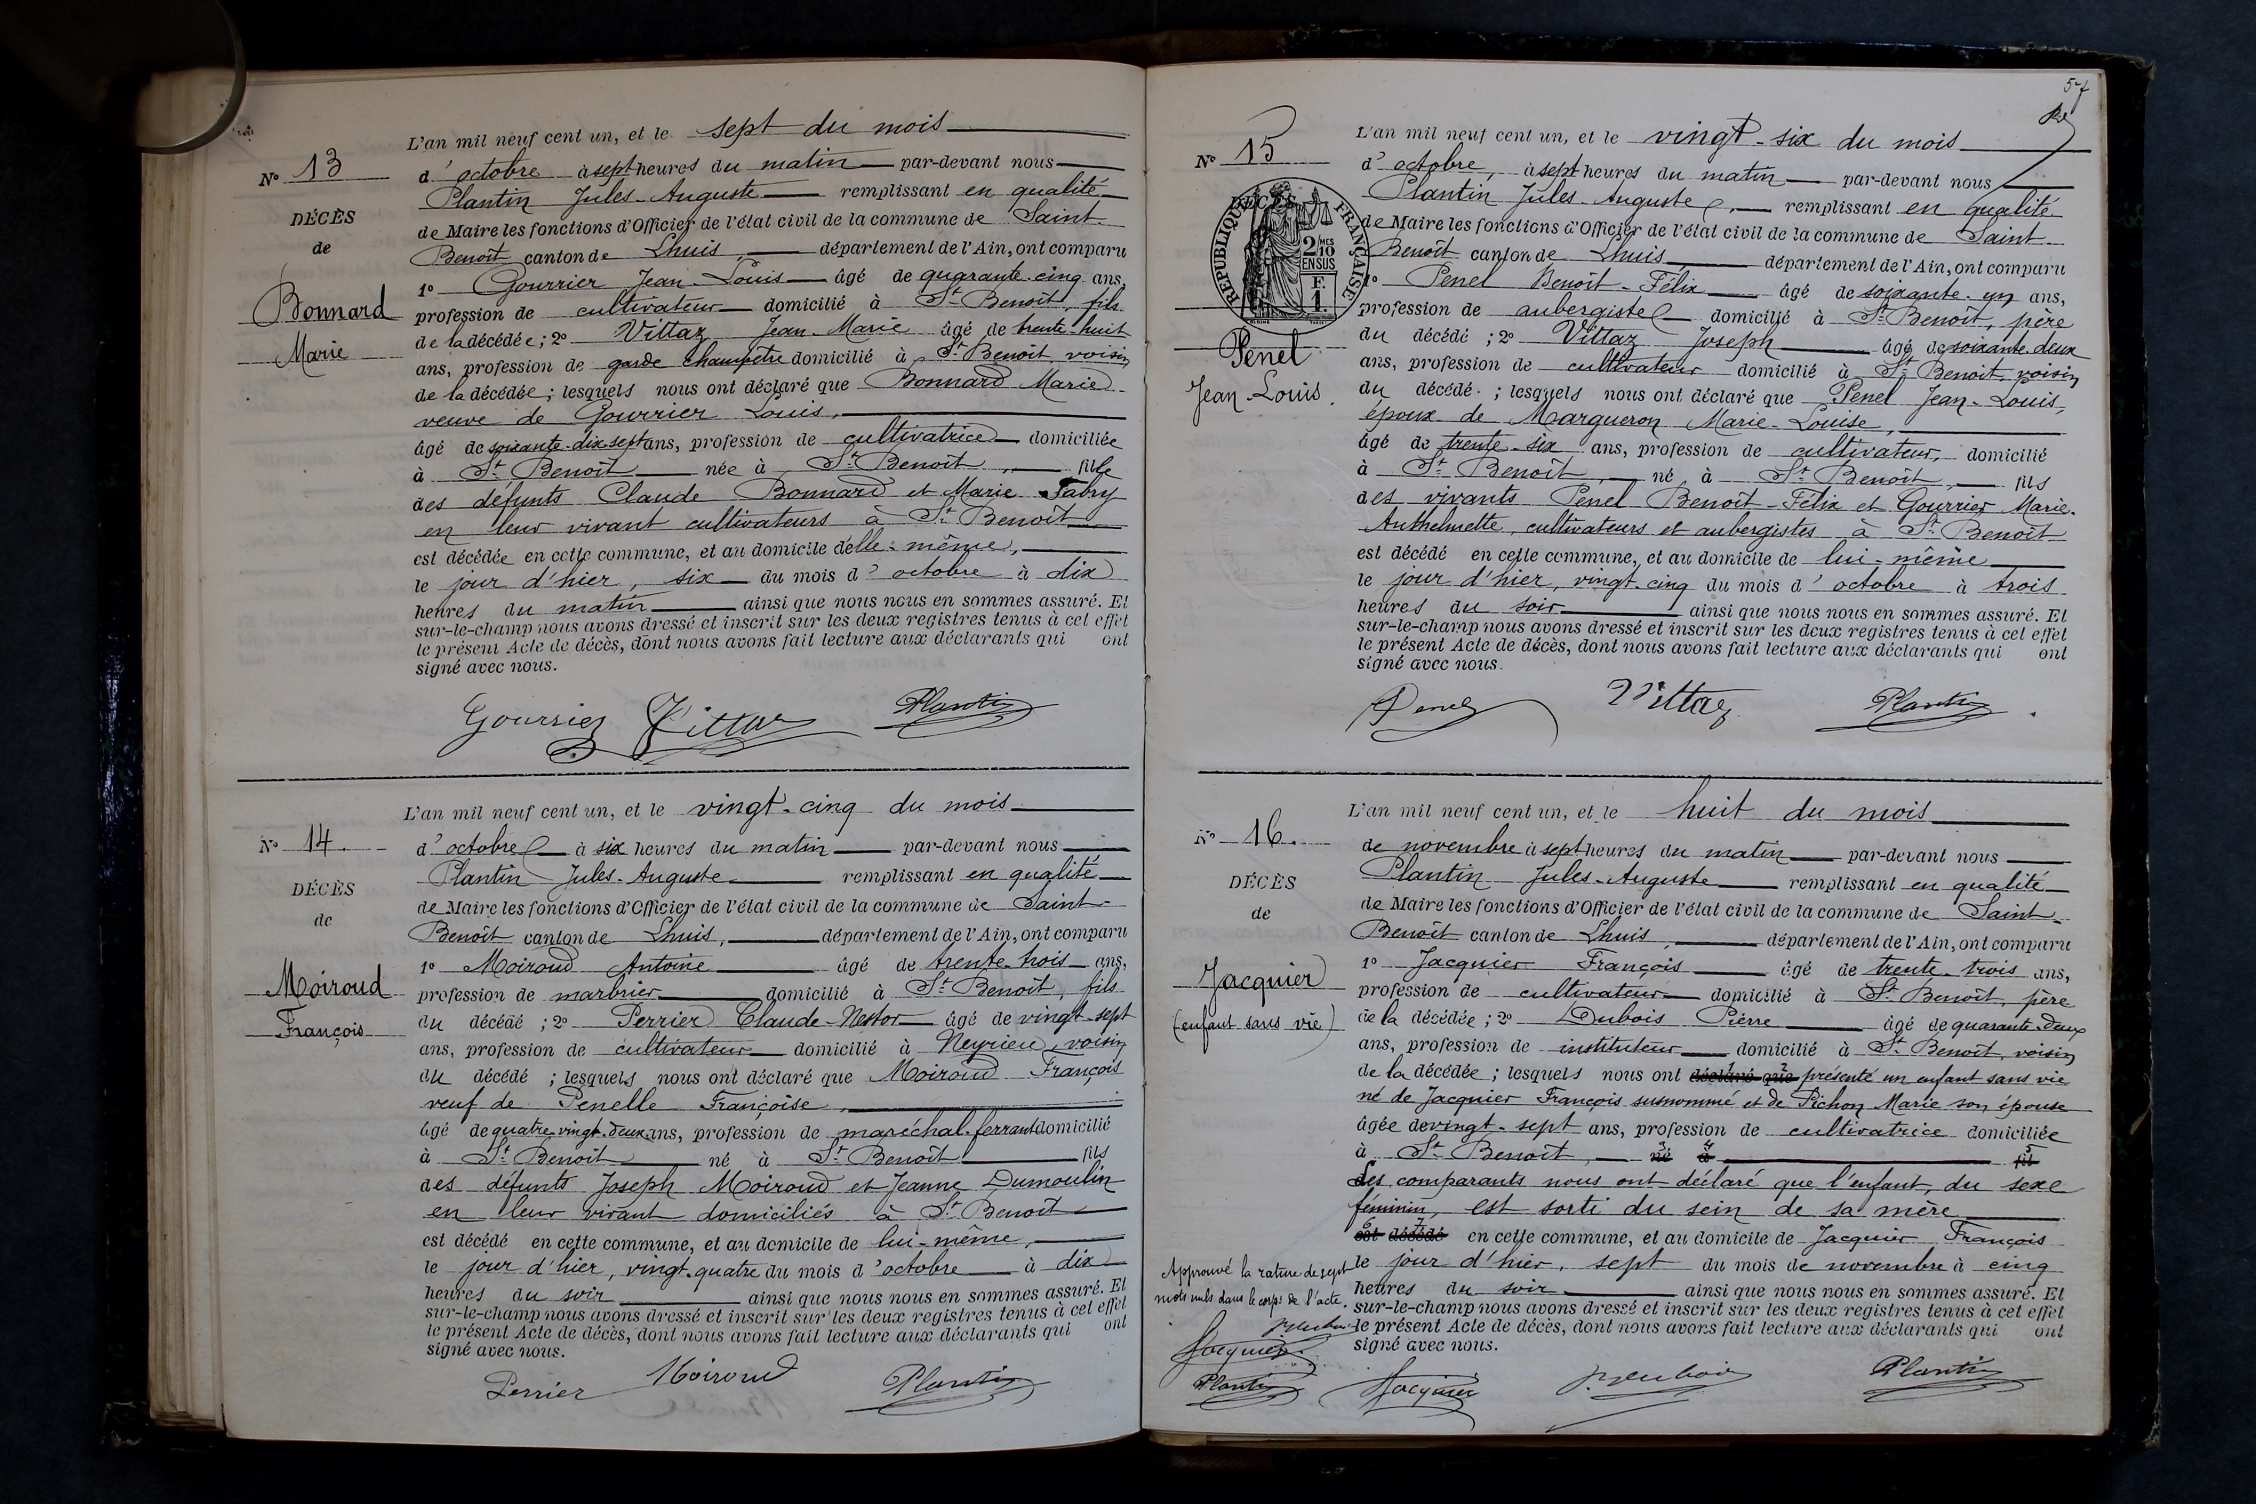 N° 13
DÉCÈS
de
Bonnard
Marie
L'an mil neuf cent un, et le sept du mois
d'octobre à sept heures du matin par-devant nous
Plantin Jules-Auguste remplissant en qualité
de Maire les fonctions d'Officier de l'état civil de la commune de Saint-
Benoît canton de Lhuis département de l'Ain, ont comparu
1° Gourrier Jean-Louis âgé de quarante-cinq ans,
profession de cultivateur domicilié à St Benoît, fils
de la décédée ; 2° Vittaz Jean-Marie âgé de trente-huit
ans, profession de garde champêtre domicilié à St Benoît, voisin
de la décédée ; lesquels nous ont déclaré que Bonnard Marie
veuve de Gourrier Louis,
âgé de soixante-dix-sept ans, profession de cultivatrice domiciliée
à St Benoît née à St Benoît, fille
des défunts Claude Bonnard et Marie Fabry
en leur vivant cultivateurs à St Benoît
est décédée en cette commune, et au domicile d'elle-même,
le jour d'hier, six du mois d'octobre à dix
heures du matin ainsi que nous nous en sommes assuré. Et
sur-le-champ nous avons dressé et inscrit sur les deux registres tenus à cet effet
le présent Acte de décès, dont nous avons fait lecture aux déclarants qui ont
signé avec nous.
Gourrier Vittaz Plantin
N° 14.
DÉCÈS
de
Moiroud
François
L'an mil neuf cent un, et le vingt-cinq du mois
d'octobre à six heures du matin par-devant nous
Plantin Jules-Auguste remplissant en qualité
de Maire les fonctions d'Officier de l'état civil de la commune de Saint-
Benoît canton de Lhuis, département de l'Ain, ont comparu
1° Moiroud Antoine âgé de trente-trois ans,
profession de marbrier domicilié à St Benoît, fils
du décédé ; 2° Perrier Claude-Nestor âgé de vingt-sept
ans, profession de cultivateur domicilié à Neyrieu, voisin
du décédé ; lesquels nous ont déclaré que Moiroud François
veuf de Penelle Françoise,
âgé de quatre-vingt-deux ans, profession de maréchal-ferrant domicilié
à St Benoît né à St Benoît fils
des défunts Joseph Moiroud et Jeanne Dumoulin
en leur vivant domiciliés à St Benoît
est décédé en cette commune, et au domicile de lui-même,
le jour d'hier, vingt-quatre du mois d'octobre à dix
heures du soir ainsi que nous nous en sommes assuré. Et
sur-le-champ nous avons dressé et inscrit sur les deux registres tenus à cet effet
le présent Acte de décès, dont nous avons fait lecture aux déclarants qui ont
signé avec nous.
Perrier Moiroud Plantin
57
N° 15
DÉCÈS
RÉPUBLIQUE FRANÇAISE
2/10 MES
EN SUS
F.
1.
Penel
Jean-Louis.
L'an mil neuf cent un, et le vingt-six du mois
d'octobre, à sept heures du matin par-devant nous
Plantin Jules-Auguste, remplissant en qualité
de Maire les fonctions d'Officier de l'état civil de la commune de Saint-
Benoît canton de Lhuis département de l'Ain, ont comparu
1° Penel Benoît-Félix âgé de soixante-un ans,
profession de aubergiste domicilié à St Benoît, père
du décédé ; 2° Vittaz Joseph âgé de soixante-deux
ans, profession de cultivateur domicilié à St Benoît, voisin
du décédé ; lesquels nous ont déclaré que Penel Jean-Louis,
époux de Margueron Marie-Louise,
âgé de trente-six ans, profession de cultivateur, domicilié
à St Benoît, né à St Benoît, fils
des vivants Penel Benoît-Félix et Gourrier Marie-
Anthelmette, cultivateurs et aubergistes à St Benoît
est décédé en cette commune, et au domicile de lui-même
le jour d'hier, vingt-cinq du mois d'octobre à trois
heures du soir ainsi que nous nous en sommes assuré. Et
sur-le-champ nous avons dressé et inscrit sur les deux registres tenus à cet effet
le présent Acte de décès, dont nous avons fait lecture aux déclarants qui ont
signé avec nous.
Penel Vittaz Plantin
N° 16.
DÉCÈS
de
Jacquier
(enfant sans vie)
L'an mil neuf cent un, et le huit du mois
de novembre à sept heures du matin par-devant nous
Plantin Jules-Auguste remplissant en qualité
de Maire les fonctions d'Officier de l'état civil de la commune de Saint-
Benoît canton de Lhuis, département de l'Ain, ont comparu
1° Jacquier François âgé de trente-trois ans,
profession de cultivateur domicilié à St Benoît, père
de la décédée ; 2° Dubois Pierre âgé de quarante-deux
ans, profession de instituteur domicilié à St Benoît, voisin
de la décédée ; lesquels nous ont déclaré que présenté un enfant sans vie
né de Jacquier François susnommé et de Pichon Marie son épouse
âgée de vingt-sept ans, profession de cultivatrice domiciliée
à St Benoît, né à fils
Les comparants nous ont déclaré que l'enfant, du sexe
féminin, est sorti du sein de sa mère
est décédé en cette commune, et au domicile de Jacquier François
le jour d'hier, sept du mois de novembre à cinq
heures du soir ainsi que nous nous en sommes assuré. Et
sur-le-champ nous avons dressé et inscrit sur les deux registres tenus à cet effet
le présent Acte de décès, dont nous avons fait lecture aux déclarants qui ont
signé avec nous.
Approuvé la rature de sept
mots nuls dans le corps de l'acte.
Jacquier
Plantin
Jacquier Dubois Plantin